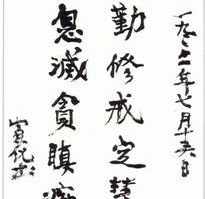 一九 二年七月十 日
勤修戒定慧
息滅貪瞋癡
宣化